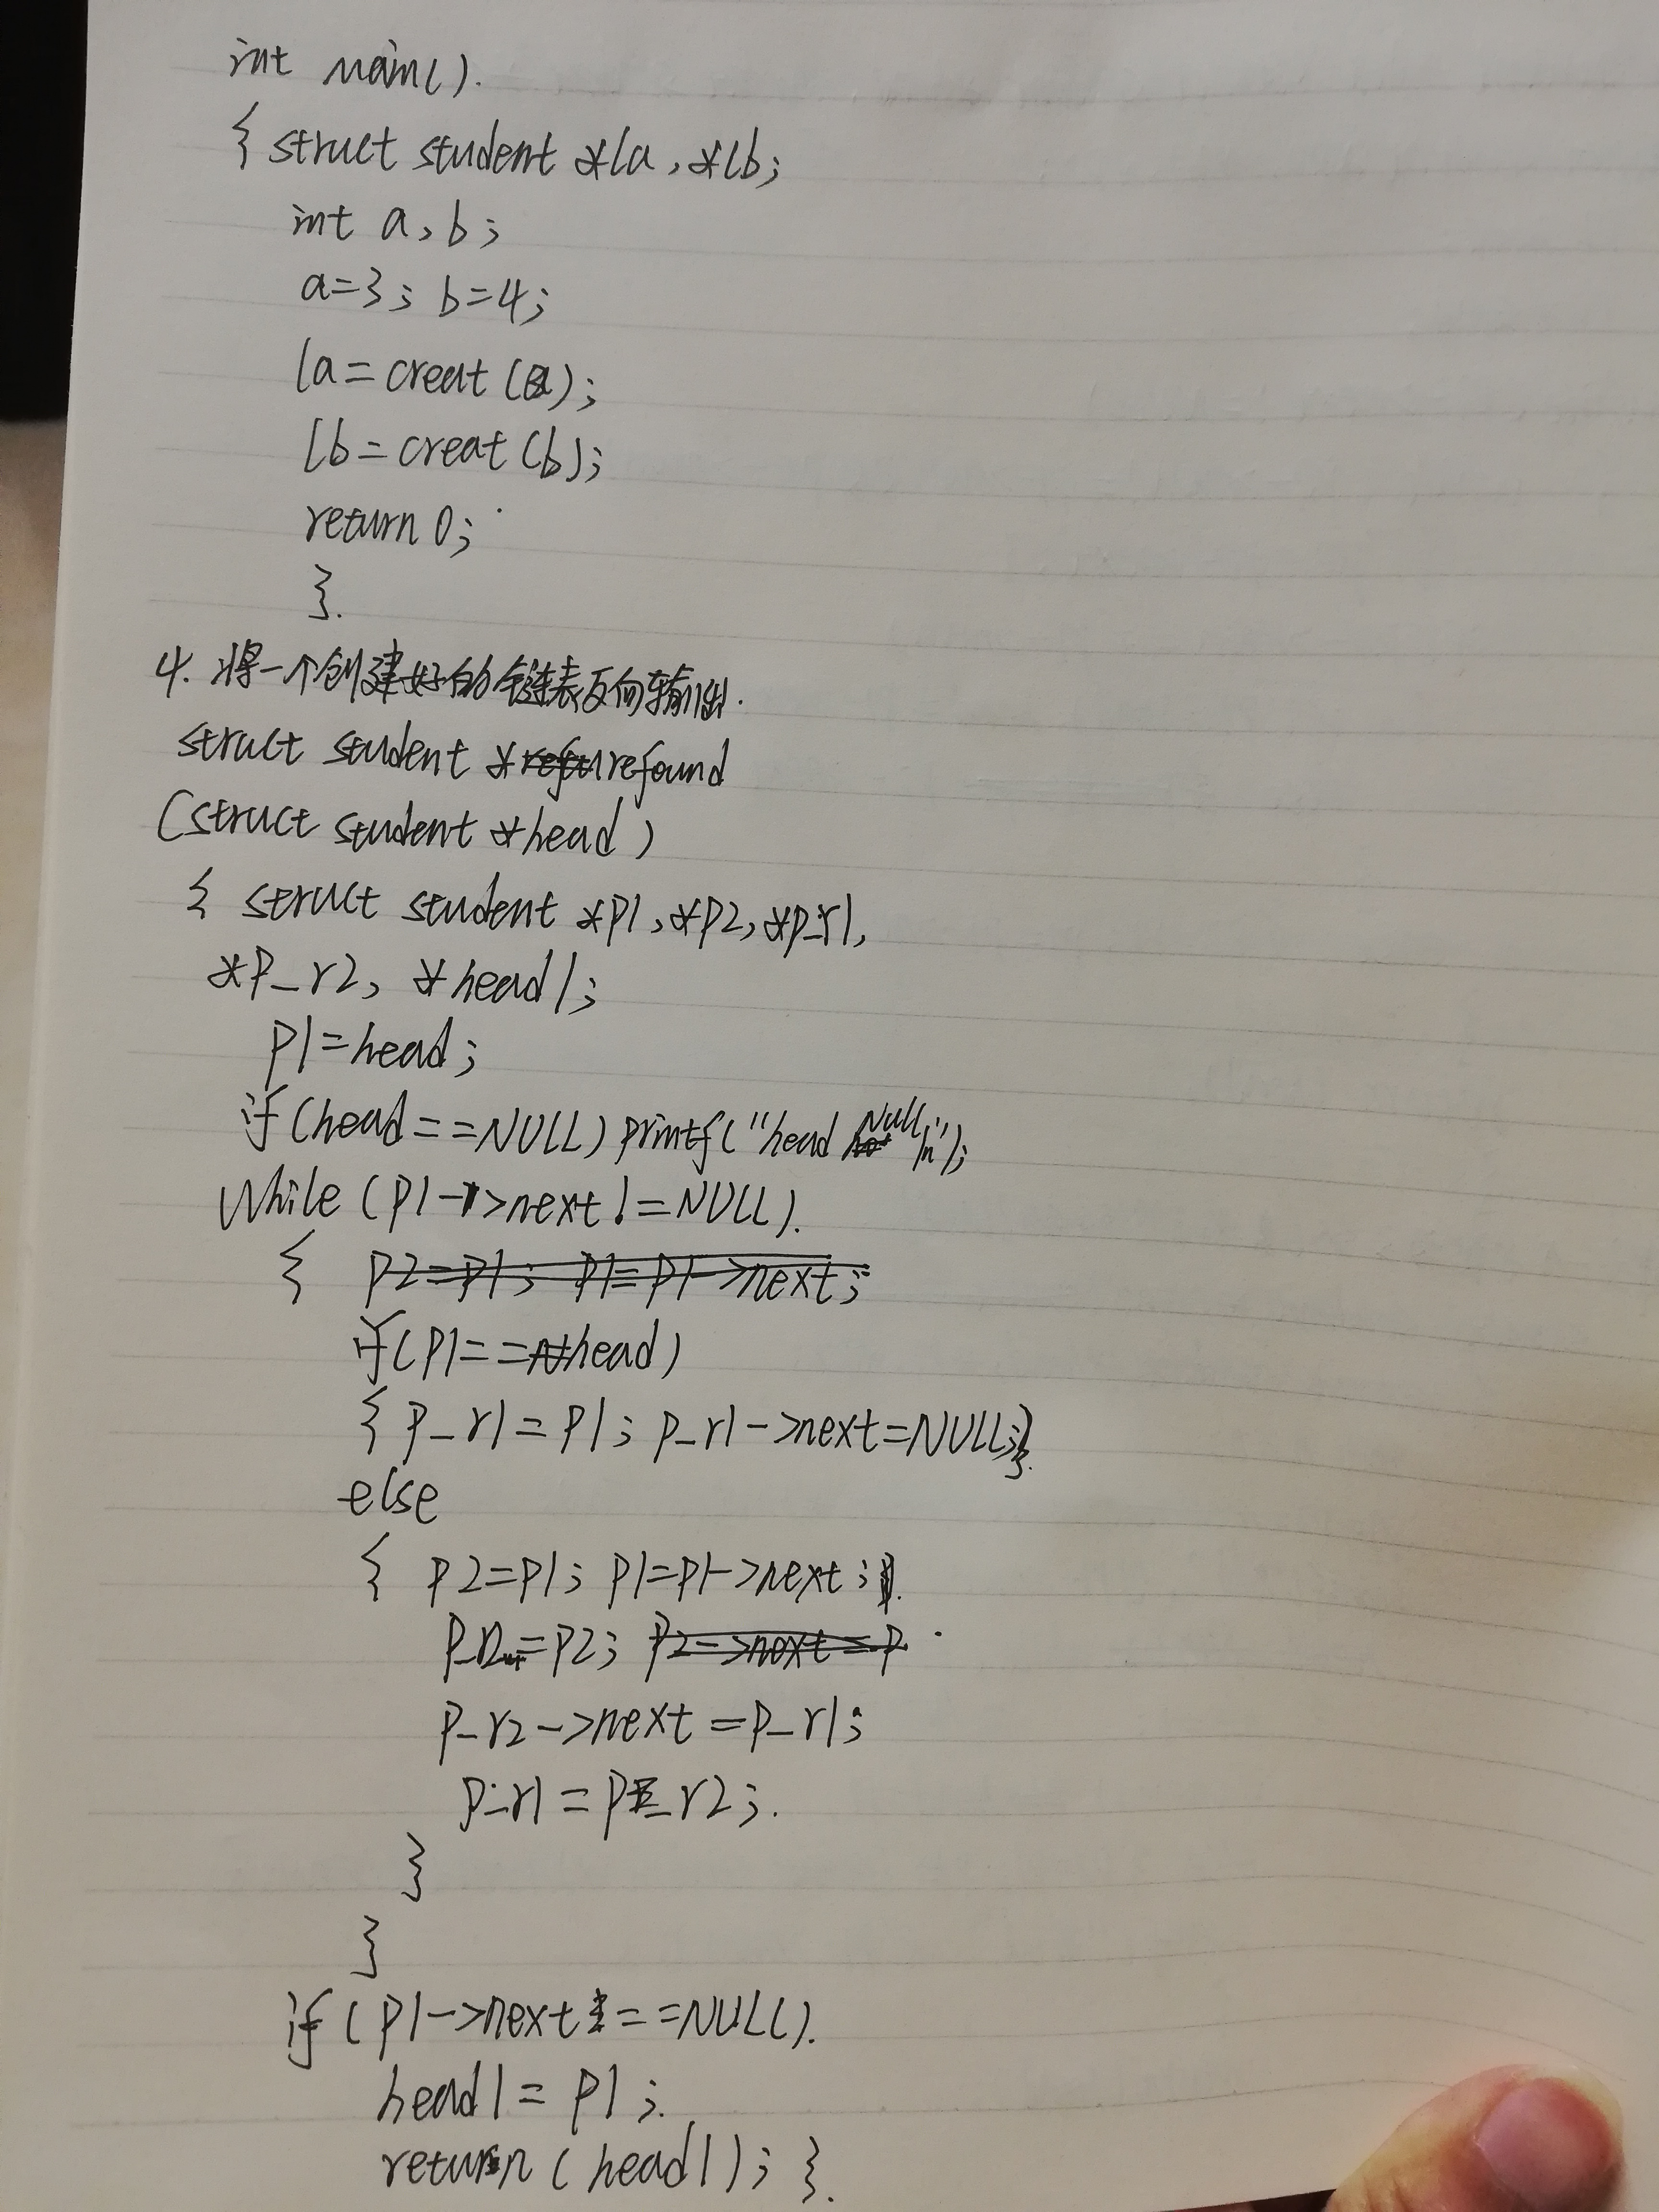 int main().
{ struct student *la, *lb;
int a, b;
a=3; b=4;
la=creat(a);
lb=creat(b);
return 0;
}.
4. 将一个创建好的链表反向输出.
struct student *refound
(struct student *head)
{ struct student *p1, *p2, *p_r1,
*p_r2, *head1;
p1=head;
if(head==NULL) printf("head Null\n");
while (p1->next!=NULL).
{ p2=p1; p1=p1->next;
if(p1==head)
{ p_r1=p1; p_r1->next=NULL;}.
else
{ p2=p1; p1=p1->next;
p_r2=p2; p2->next=p.
p_r2->next=p_r1;
p_r1=p_r2;.
}
}
if(p1->next==NULL).
head1=p1;.
return(head1); }.